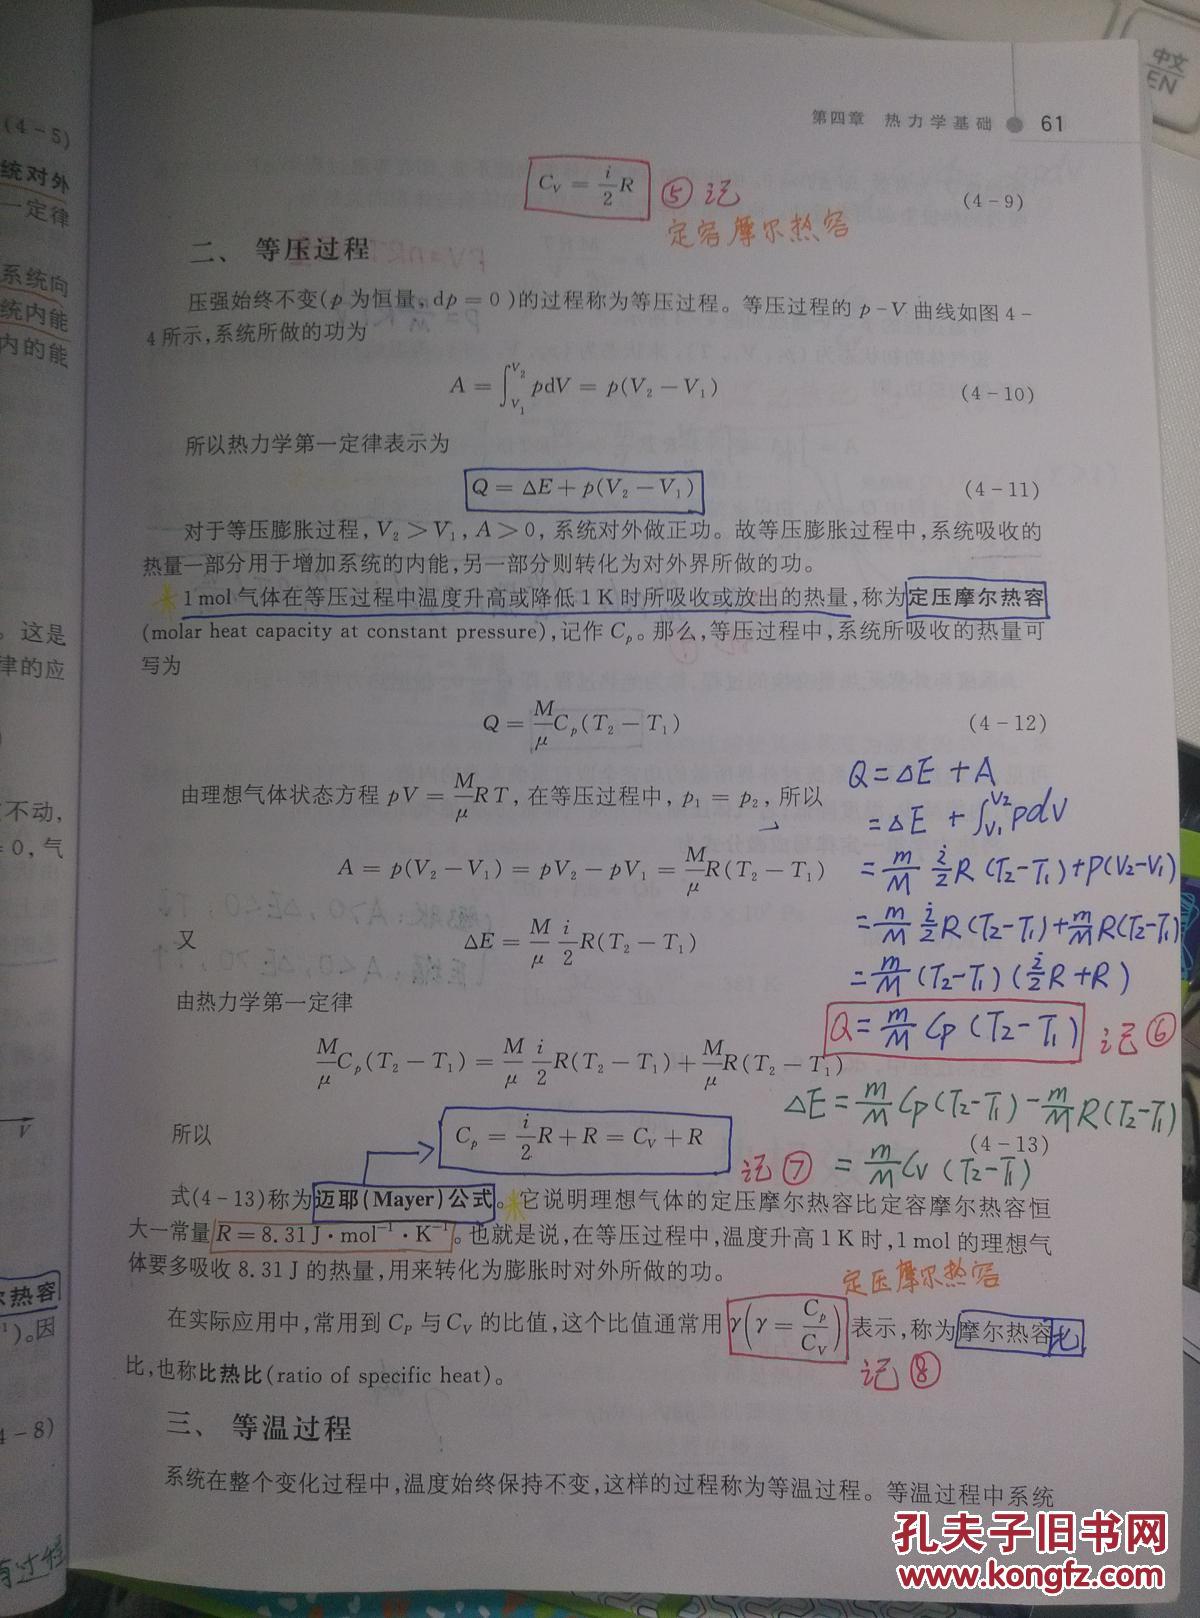 中文
EN
第四章 热力学基础 61
(4-5)
统对外
一定律
系统向
统内能
内的能
。这是
律的应
不动,
= 0, 气
V
尔热容
)。因
4-8)
有过程
C_V = i/2 R (4-9)
⑤ 记
定容摩尔热容
二、等压过程
压强始终不变(p 为恒量, dp = 0)的过程称为等压过程。等压过程的 p-V 曲线如图 4-
4 所示,系统所做的功为
A = ∫_{V₁}^{V₂} pdV = p(V₂ - V₁) (4-10)
所以热力学第一定律表示为
Q = ΔE + p(V₂ - V₁) (4-11)
对于等压膨胀过程, V₂ > V₁, A > 0, 系统对外做正功。故等压膨胀过程中,系统吸收的
热量一部分用于增加系统的内能,另一部分则转化为对外界所做的功。
1 mol 气体在等压过程中温度升高或降低 1 K 时所吸收或放出的热量,称为定压摩尔热容
(molar heat capacity at constant pressure),记作 C_p。那么,等压过程中,系统所吸收的热量可
写为
Q = M/μ C_p(T₂ - T₁) (4-12)
由理想气体状态方程 pV = M/μ RT, 在等压过程中, p₁ = p₂, 所以
A = p(V₂ - V₁) = pV₂ - pV₁ = M/μ R(T₂ - T₁)
又 ΔE = M/μ i/2 R(T₂ - T₁)
由热力学第一定律
M/μ C_p(T₂ - T₁) = M/μ i/2 R(T₂ - T₁) + M/μ R(T₂ - T₁)
所以 C_p = i/2 R + R = C_V + R (4-13)
Q = ΔE + A
= ΔE + ∫_{V₁}^{V₂} pdV
= m/M i/2 R (T₂-T₁) + P(V₂-V₁)
= m/M i/2 R (T₂-T₁) + m/M R(T₂-T₁)
= m/M (T₂-T₁) (i/2 R + R)
Q = m/M Cp (T₂-T₁) 记 ⑥
ΔE = m/M Cp (T₂-T₁) - m/M R (T₂-T₁)
= m/M Cv (T₂-T₁)
记 ⑦
式(4-13)称为迈耶(Mayer)公式。它说明理想气体的定压摩尔热容比定容摩尔热容恒
大一常量 R = 8.31 J·mol⁻¹·K⁻¹。也就是说,在等压过程中,温度升高 1 K 时, 1 mol 的理想气
体要多吸收 8.31 J 的热量,用来转化为膨胀时对外所做的功。
定压摩尔热容
在实际应用中,常用到 C_P 与 C_V 的比值,这个比值通常用 γ(γ = C_p/C_V) 表示,称为摩尔热容比
比,也称比热比(ratio of specific heat)。
记 ⑧
三、等温过程
系统在整个变化过程中,温度始终保持不变,这样的过程称为等温过程。等温过程中系统
孔夫子旧书网
www.kongfz.com